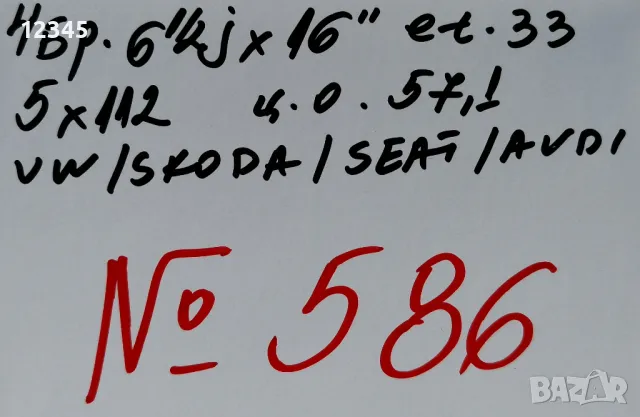 12345
4бр. 6½j x 16" et. 33
5x112 ц.о. 57,1
VW/SKODA/SEAT/AUDI
№ 586
BAZAR
bg